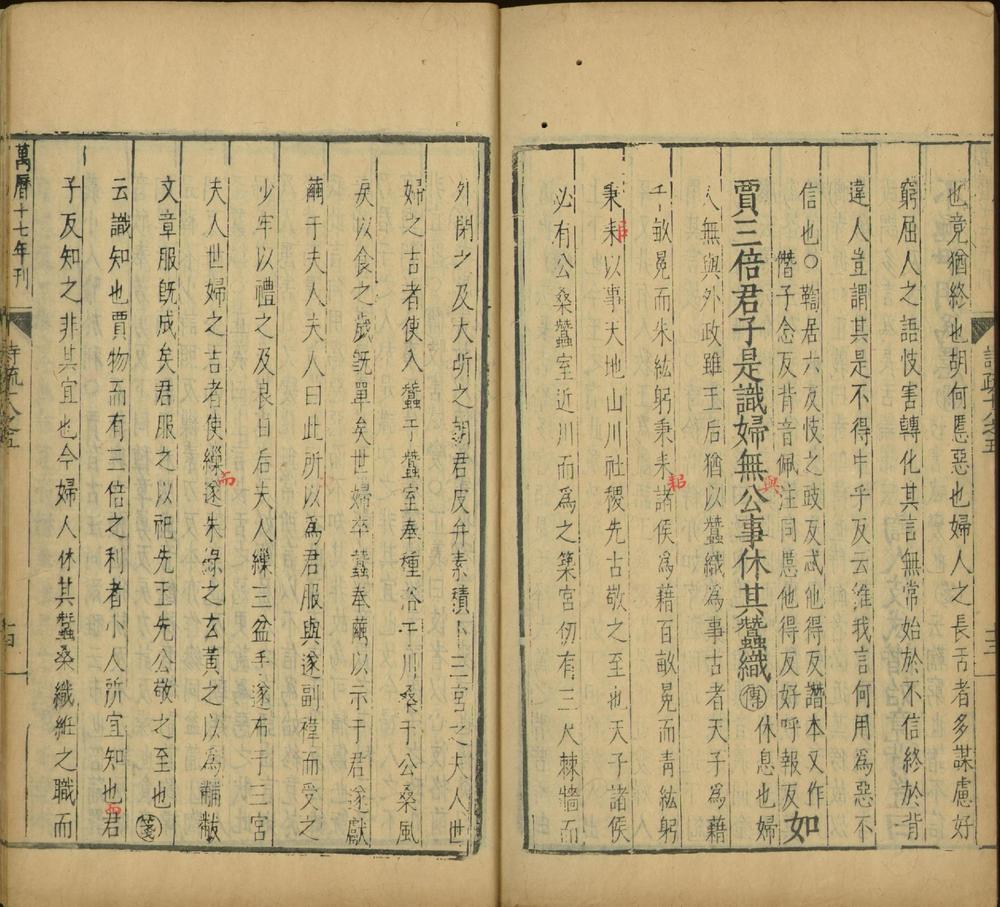 也竟猶終也胡何慝惡也婦人之長舌者多謀慮好
窮屈人之語忮害轉化其言無常始於不信終於背
違人豈謂其是不得中乎反云維我言何用爲惡不
信也○鞫居六反忮之豉反忒他得反譖本又作
僭子念反背音佩注同慝他得反好呼報反如
賈三倍君子是識婦無公事休其蠶織傳休息也婦
與
人無與外政雖王后猶以蠶織爲事古者天子爲藉
千畝冕而朱紘躬秉耒諸侯爲藉百畝冕而青紘躬
耜
秉耒以事天地山川社稷先古敬之至也天子諸侯
必有公桑蠶室近川而爲之築宮仞有三尺棘牆而
詩疏
外閉之及大昕之朝君皮弁素積卜三宮之夫人世
婦之吉者使入蠶于蠶室奉種浴于川桑于公桑風
戾以食之歲旣單矣世婦卒蠶奉繭以示于君遂獻
繭于夫人夫人曰此所以爲君服與遂副褘而受之
少牢以禮之及良日后夫人繅三盆手遂布于三宮
夫人世婦之吉者使繅遂朱綠之玄黃之以爲黼黻
而
文章服旣成矣君服之以祀先王先公敬之至也箋
云識知也賈物而有三倍之利者小人所宜知也君
而
子反知之非其宜也今婦人休其蠶桑織紝之職而
萬曆十七年刊
詩疏